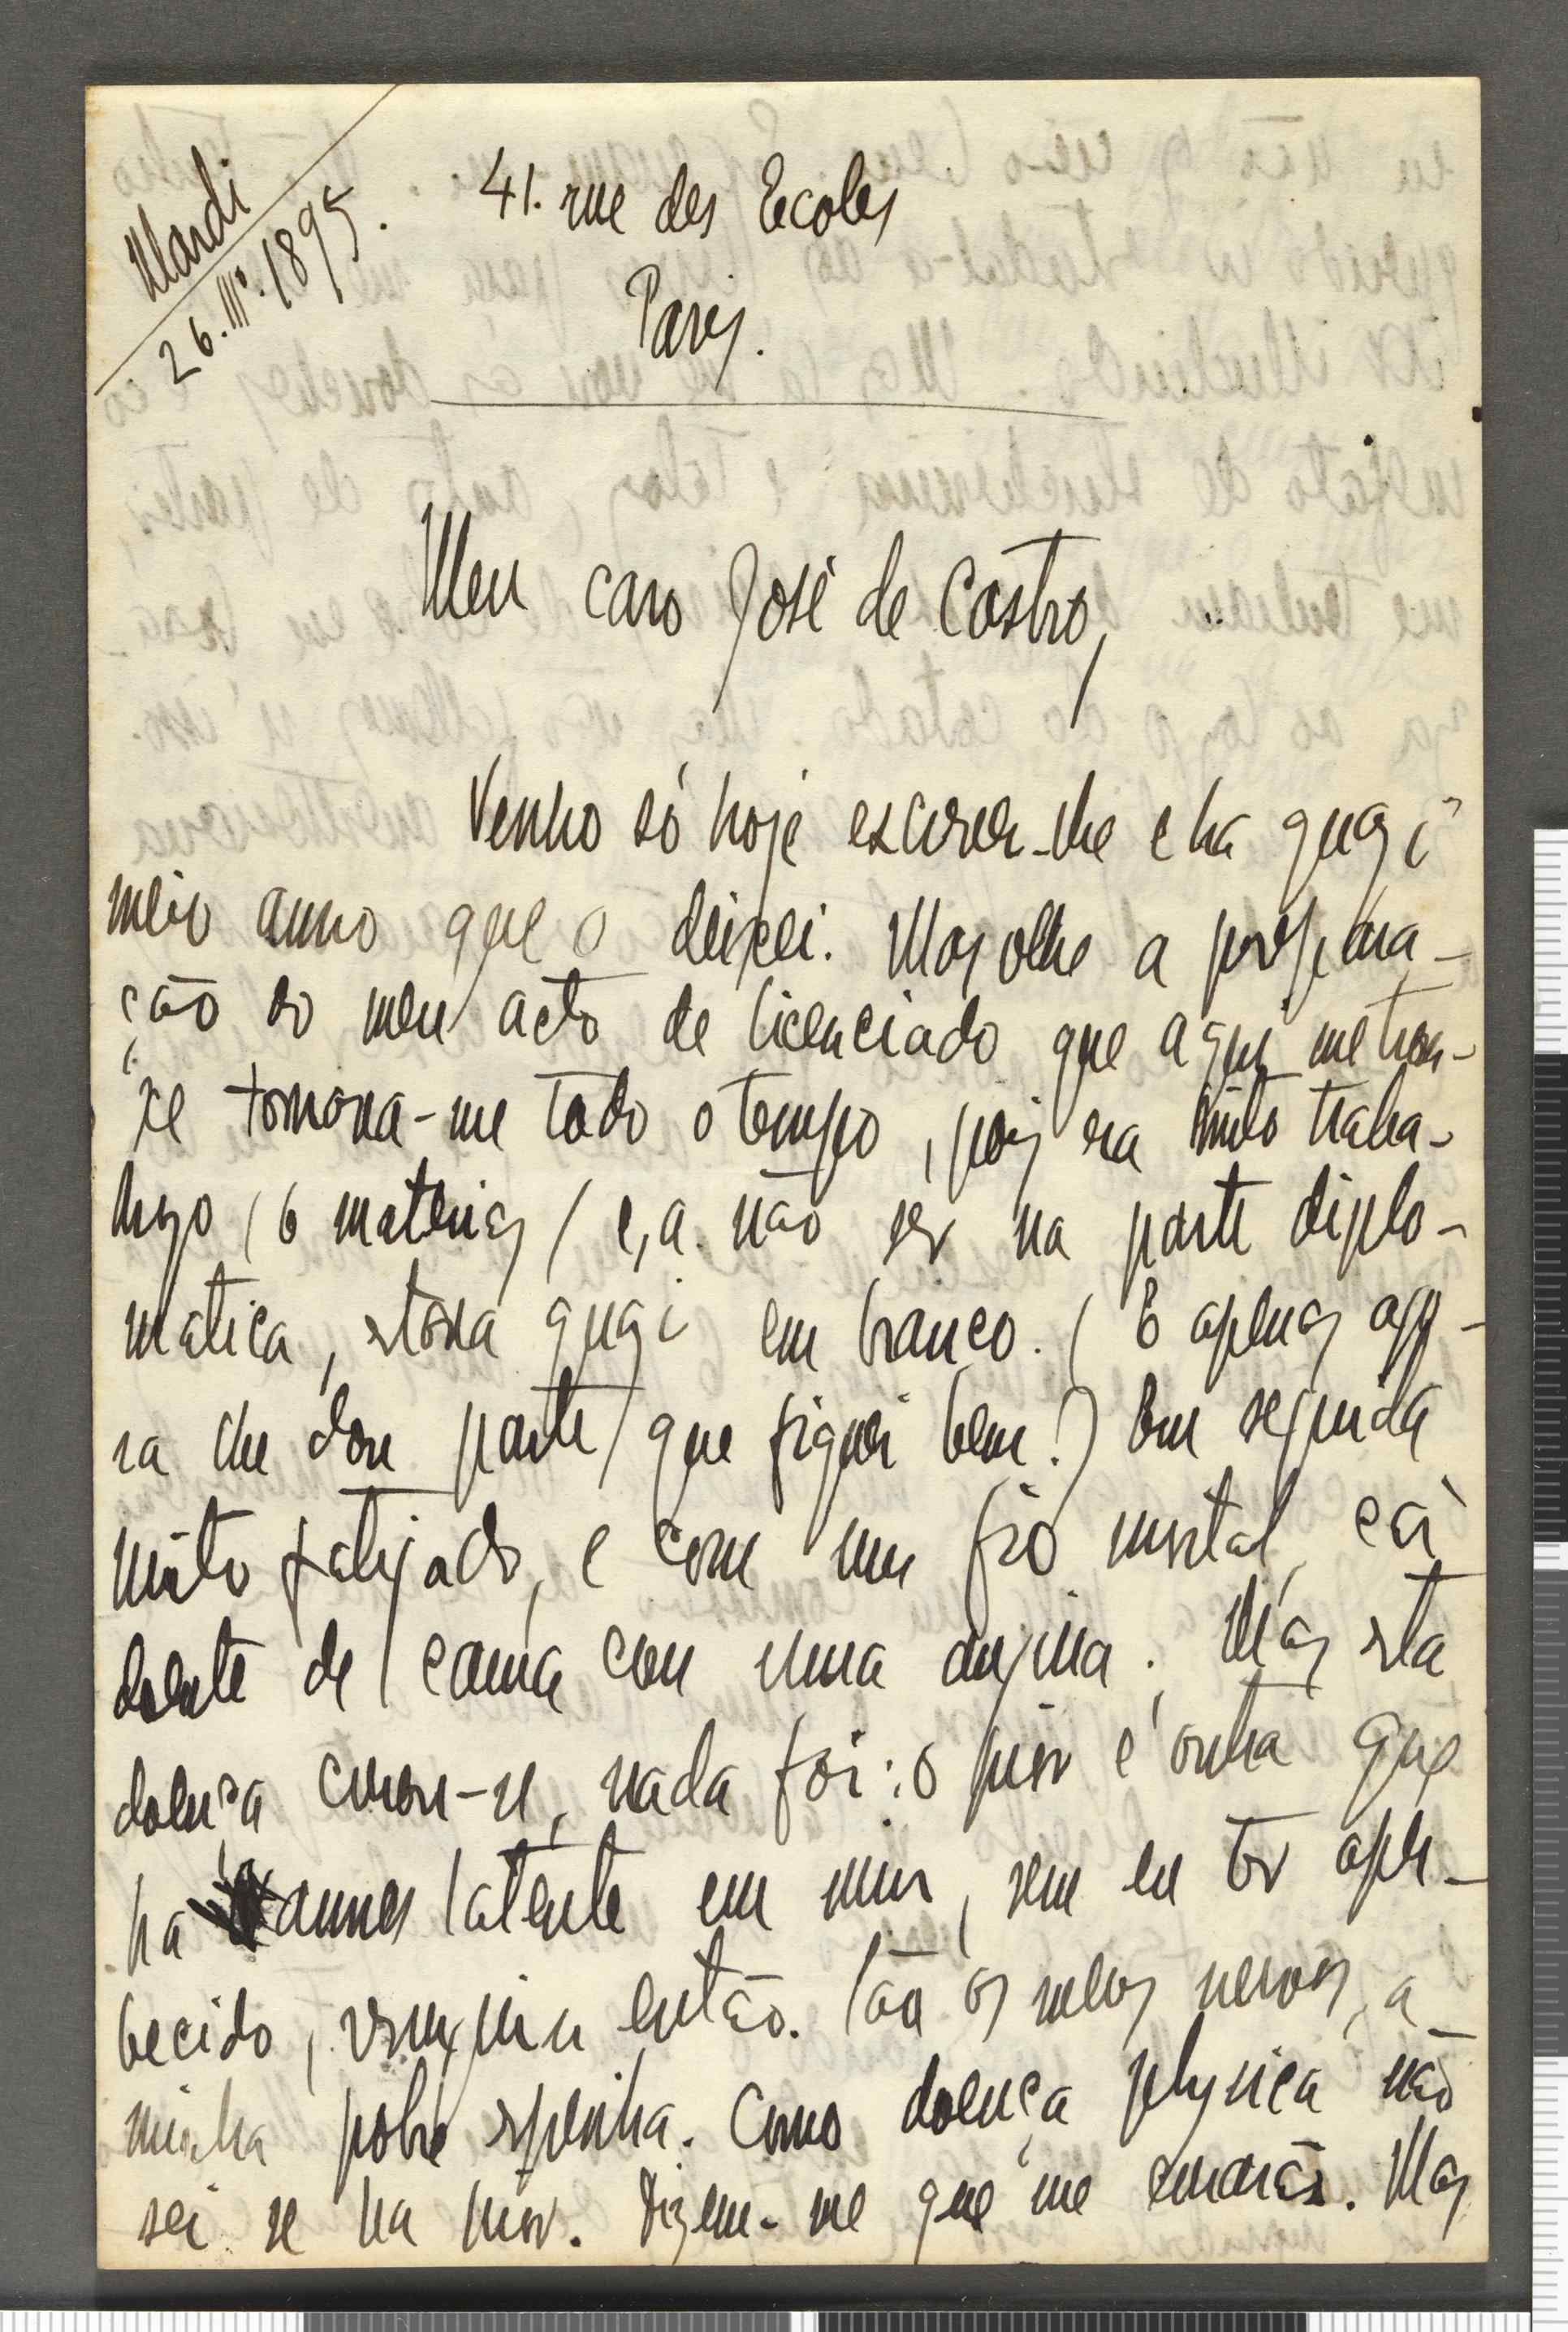 Mardi
26.III.º1895.
41. rue des Ecoles
Paris.
Meu caro José de Castro,
Venho só hoje escrever-lhe e ha quasi
meio anno que o deixei. Mas olhe a prepara-
ção do meu acto de licenciado que aqui me trou-
xe tomava-me todo o tempo, pois era muito traba-
lhoso (6 materias) e, a não ser na parte diplo-
matica, estava quasi em branco. (É apenas ago-
ra lhe dou parte que fiquei bem!) Em seguida
muito fatigado, e com um frio mortal, caí
doente de cama com uma angina. Mas esta
doença curou-se, nada foi: o pior é outra que
ha annos latente em mim, sem eu ter aper-
cebido, então. São os meus nervos, a
minha pobre espinha. Como doença physica não
sei se ha pior. Dizem-me que me curarás. Mas